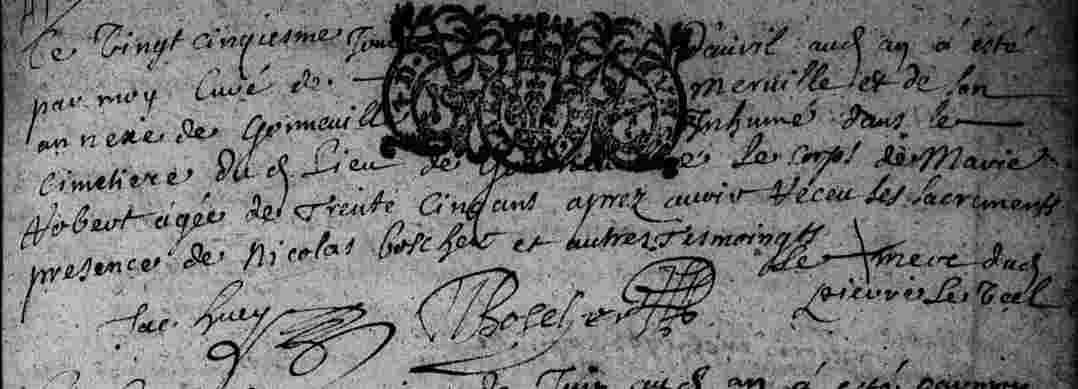 Le Vingt cinquiesme Jour d'auvil aud an á esté
par moy Curé de Merville et de son
annexe de Gonneville Inhumé dans le
cimetiere dud Lieu de le corps de Marie
Hobert agée de Trente Cinq ans aprez avoir Receu les sacrements
presence de Nicolas boscher et autres Tesmoingts
Le dud
pierre le
Jac huey Boscher
de Juin aud an á esté